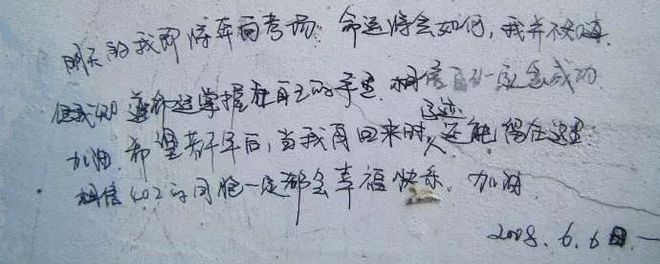 明天的我即将奔向考场.命运将会如何,我并不
但我知道命运掌握在自己的手里.相信自一定会成功
加油.希望若干年后,当我再回来时,还能留在这里
相信402的同胞一定都会幸福快乐.加油
2008.6.6日.